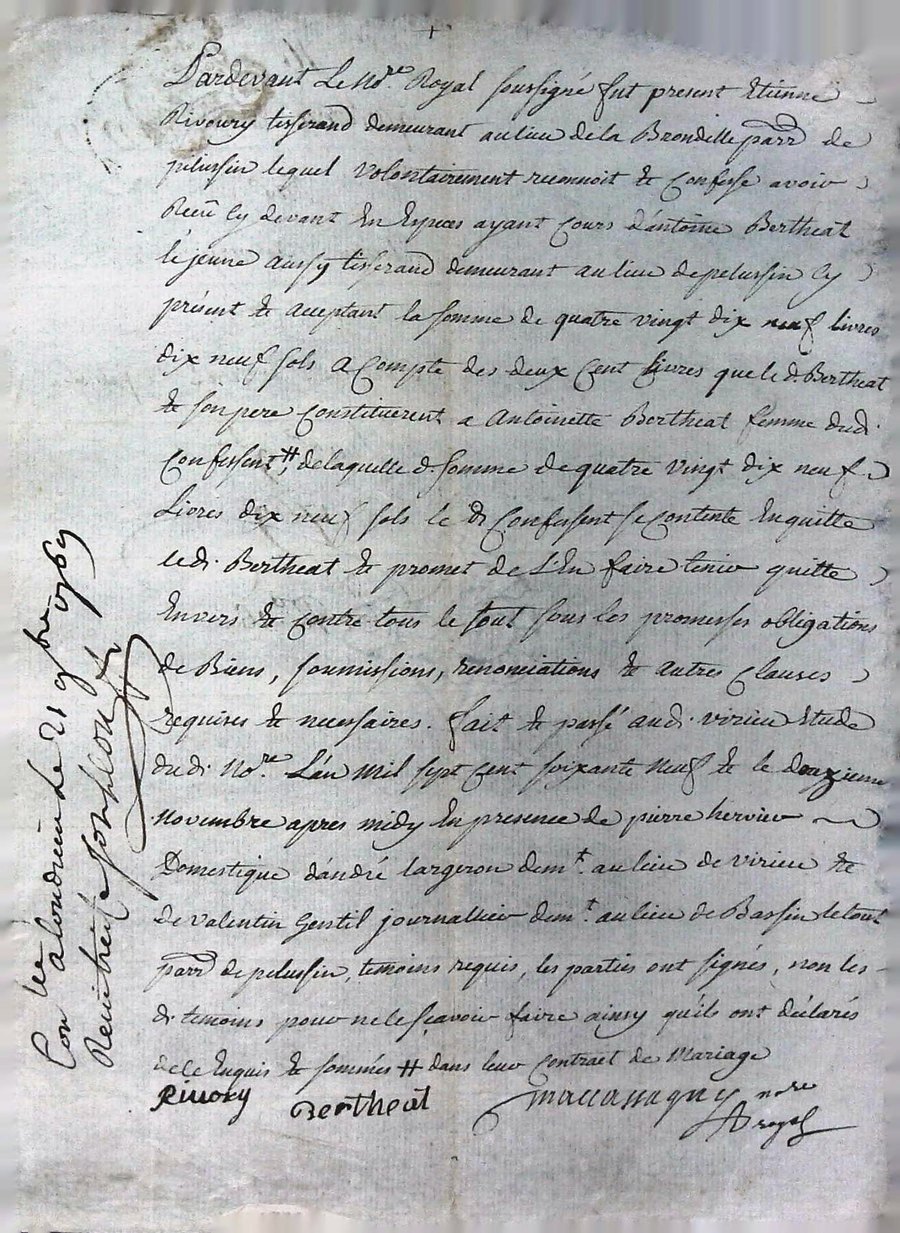 +
Pardevant Le No.re Royal soussigné fut present Etienne
Rivoury tisserand demeurant au lieu de la Brondelle parr. de
pelussin lequel volontairement reconnoit & Confesse avoir
Receu Cy devant En Especes ayant Cours d'antoine Bertheat
le jeune aussy tisserand demeurant au lieu de pelussin Cy
présent & acceptant la somme de quatre vingt dix neuf livres
dix neuf sols a Compte des deux Cent livres que le d. Bertheat
& son pere Constituerent a Antoinette Bertheat femme dud.
Confessent #, de laquelle d. somme de quatre vingt dix neuf
Livres dix neuf sols le d. Confessent se contente En quitte
led. Bertheat & promet de L'En faire tenir quitte
Envers & contre tous le tout sous les promesses obligations
de Biens, soumissions, renonciations & autres Clauses
requises & necessaires. fait & passé aud. virieu Etude
dud. No.re L'an Mil sept Cent soixante Neuf & le douzieme
Novembre apres midy En presence de pierre hervier
Domestique d'andré largeron dem.t au lieu de virieu &
de valentin Gentil journallier dem.t au lieu de Bassin le tout
parr. de pelussin, temoins requis, les parties ont signés, non les
d. temoins pour ne le sçavoir faire ainsy qu'ils ont déclarés
de ce Enquis & sommés # dans leur Contract de Mariage
Rivory
Bertheat
no.re
royal
Con.lé a Condrieu Le 21 9bre 1769